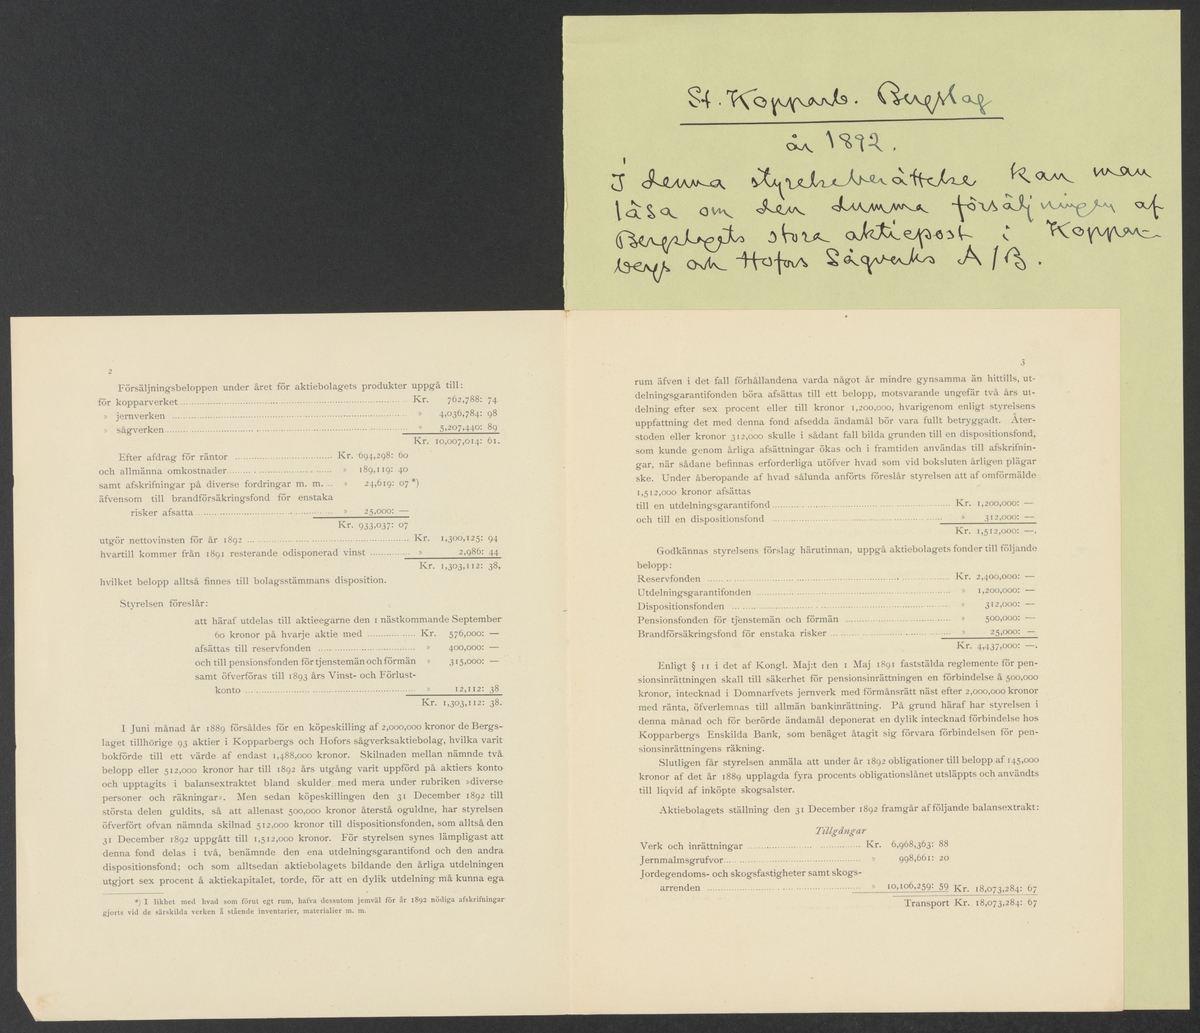 St. Kopparb. Bergslag
år 1892.
I denna styrelseberättelse kan man
läsa om den dumma försäljningen af
Bergslagets stora aktiepost i Koppar-
bergs och Hofors Sågverks A/B.
2
Försäljningsbeloppen under året för aktiebolagets produkter uppgå till:
för kopparverket Kr. 762,788: 74
» jernverken » 4,036,784: 98
» sågverken » 5,207,440: 89
Kr. 10,007,014: 61.
Efter afdrag för räntor Kr. 694,298: 60
och allmänna omkostnader » 189,119: 40
samt afskrifningar på diverse fordringar m. m. » 24,619: 07 *)
äfvensom till brandförsäkringsfond för enstaka
risker afsatta » 25,000: —
Kr. 933,037: 07
utgör nettovinsten för år 1892 Kr. 1,300,125: 94
hvartill kommer från 1891 resterande odisponerad vinst » 2,986: 44
Kr. 1,303,112: 38,
hvilket belopp alltså finnes till bolagsstämmans disposition.
Styrelsen föreslår:
att häraf utdelas till aktieegarne den 1 nästkommande September
60 kronor på hvarje aktie med Kr. 576,000: —
afsättas till reservfonden » 400,000: —
och till pensionsfonden för tjenstemän och förmän » 315,000: —
samt öfverföras till 1893 års Vinst- och Förlust-
konto » 12,112: 38
Kr. 1,303,112: 38.
I Juni månad år 1889 försåldes för en köpeskilling af 2,000,000 kronor de Bergs-
laget tillhörige 93 aktier i Kopparbergs och Hofors sågverksaktiebolag, hvilka varit
bokförde till ett värde af endast 1,488,000 kronor. Skilnaden mellan nämnde två
belopp eller 512,000 kronor har till 1892 års utgång varit uppförd på aktiers konto
och upptagits i balansextraktet bland skulder med mera under rubriken »diverse
personer och räkningar». Men sedan köpeskillingen den 31 December 1892 till
största delen guldits, så att allenast 500,000 kronor återstå oguldne, har styrelsen
öfverfört ofvan nämnda skilnad 512,000 kronor till dispositionsfonden, som alltså den
31 December 1892 uppgått till 1,512,000 kronor. För styrelsen synes lämpligast att
denna fond delas i två, benämnde den ena utdelningsgarantifond och den andra
dispositionsfond; och som alltsedan aktiebolagets bildande den årliga utdelningen
utgjort sex procent å aktiekapitalet, torde, för att en dylik utdelning må kunna ega
*) I likhet med hvad som förut egt rum, hafva dessutom jemväl för år 1892 nödiga afskrifningar
gjorts vid de särskilda verken å stående inventarier, materialier m. m.
3
rum äfven i det fall förhållandena varda något år mindre gynsamma än hittills, ut-
delningsgarantifonden böra afsättas till ett belopp, motsvarande ungefär två års ut-
delning efter sex procent eller till kronor 1,200,000, hvarigenom enligt styrelsens
uppfattning det med denna fond afsedda ändamål bör vara fullt betryggadt. Åter-
stoden eller kronor 312,000 skulle i sådant fall bilda grunden till en dispositionsfond,
som kunde genom årliga afsättningar ökas och i framtiden användas till afskrifnin-
gar, när sådane befinnas erforderliga utöfver hvad som vid boksluten årligen plägar
ske. Under åberopande af hvad sålunda anförts föreslår styrelsen att af omförmälde
1,512,000 kronor afsättas
till en utdelningsgarantifond Kr. 1,200,000: —
och till en dispositionsfond » 312,000: —
Kr. 1,512,000: —.
Godkännas styrelsens förslag härutinnan, uppgå aktiebolagets fonder till följande
belopp:
Reservfonden Kr. 2,400,000: —
Utdelningsgarantifonden » 1,200,000: —
Dispositionsfonden » 312,000: —
Pensionsfonden för tjenstemän och förmän » 500,000: —
Brandförsäkringsfond för enstaka risker » 25,000: —
Kr. 4,437,000: —.
Enligt § 11 i det af Kongl. Maj:t den 1 Maj 1891 fastställda reglemente för pen-
sionsinrättningen skall till säkerhet för pensionsinrättningen en förbindelse å 500,000
kronor, intecknad i Domnarfvets jernverk med förmånsrätt näst efter 2,000,000 kronor
med ränta, öfverlemnas till allmän bankinrättning. På grund häraf har styrelsen i
denna månad och för berörde ändamål deponerat en dylik intecknad förbindelse hos
Kopparbergs Enskilda Bank, som benäget åtagit sig förvara förbindelsen för pen-
sionsinrättningens räkning.
Slutligen får styrelsen anmäla att under år 1892 obligationer till belopp af 145,000
kronor af det år 1889 upplagda fyra procents obligationslånet utsläppts och användts
till liqvid af inköpte skogsalster.
Aktiebolagets ställning den 31 December 1892 framgår af följande balansextrakt:
Tillgångar
Verk och inrättningar Kr. 6,968,363: 88
Jernmalmsgrufvor » 998,661: 20
Jordegendoms- och skogsfastigheter samt skogs-
arrenden » 10,106,259: 59 Kr. 18,073,284: 67
Transport Kr. 18,073,284: 67